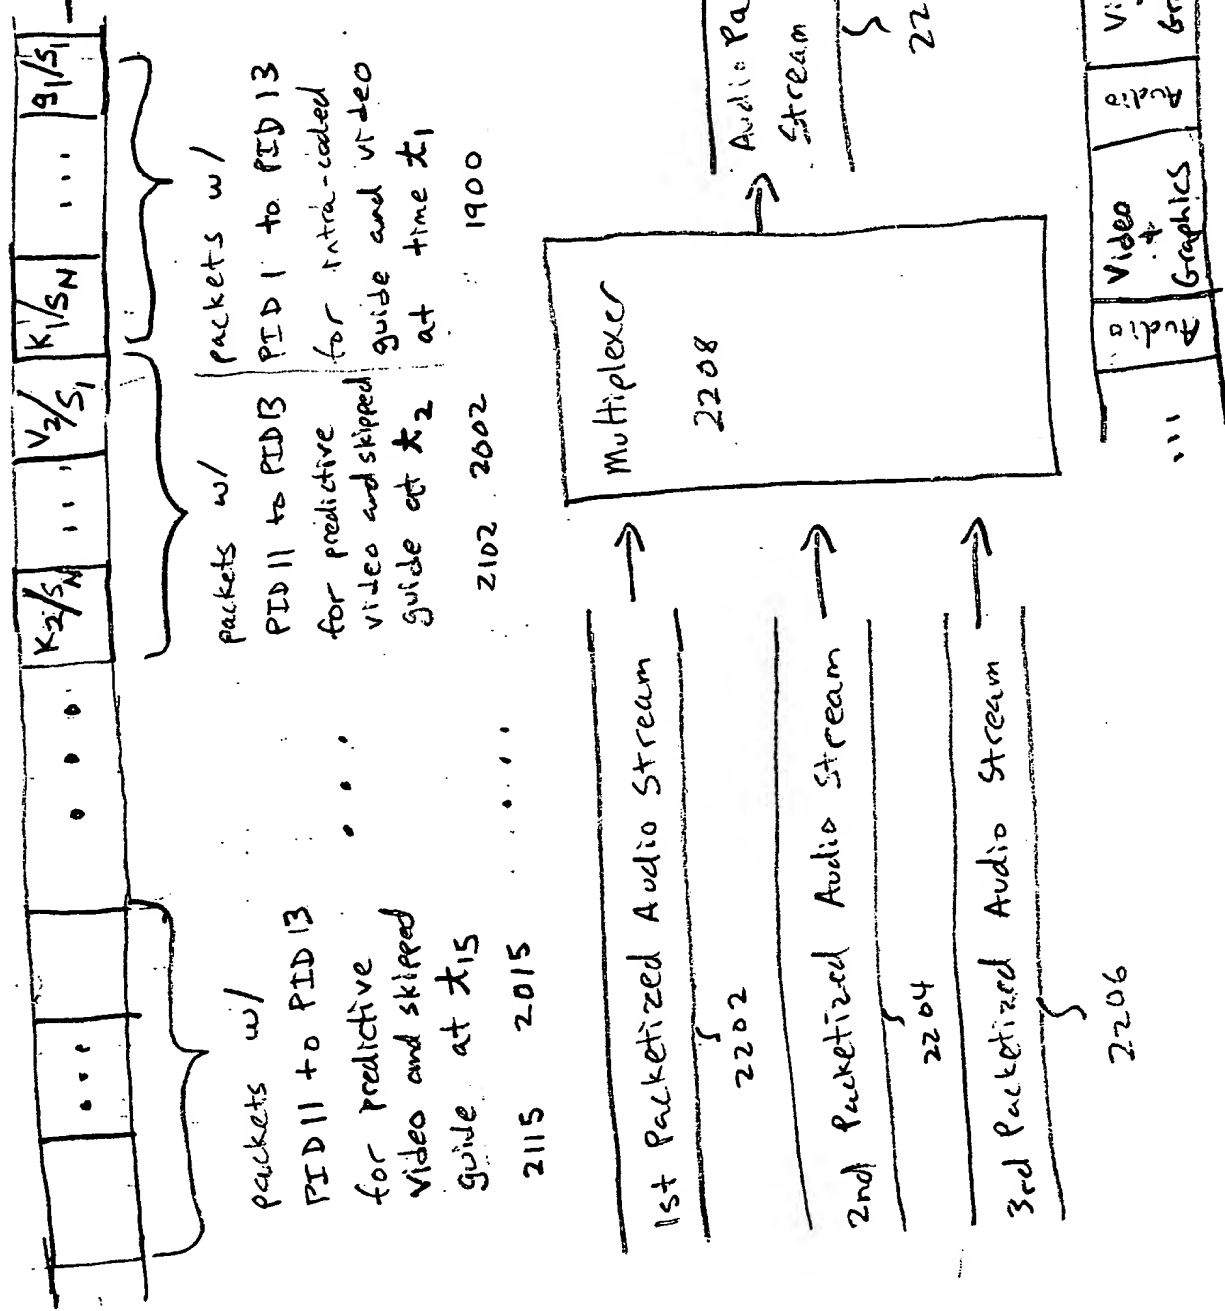 K2/SN
...
V2/S1
K1/SN
...
g1/S1
packets w/
PID11 to PID13
for predictive
video and skipped
guide at t15
2115 2015
...
packets w/
PID11 to PID13
for predictive
video and skipped
guide at t2
2102 2002
packets w/
PID1 to PID13
for intra-coded
guide and video
at time t1
1900
1st Packetized Audio Stream
2202
2nd Packetized Audio Stream
2204
3rd Packetized Audio Stream
2206
Multiplexer
2208
Audio Pa
Stream
22
...
Audio
Video
+
Graphics
Audio
Vi
Gra